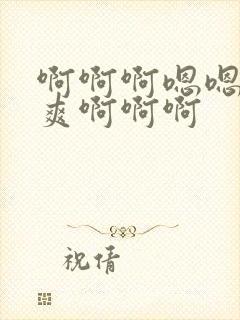 啊啊啊嗯嗯
爽啊啊啊
祝倩